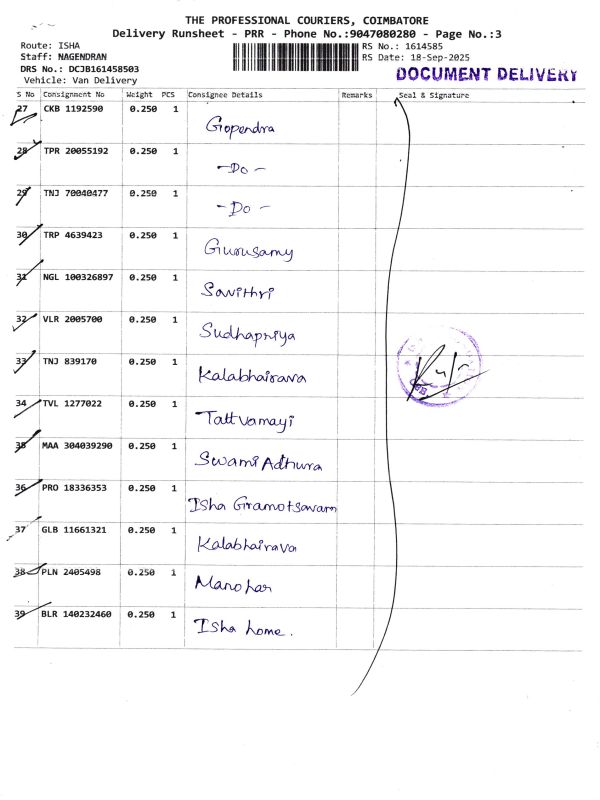 THE PROFESSIONAL COURIERS, COIMBATORE
Delivery Runsheet - PRR - Phone No.:9047080280 - Page No.:3
Route: ISHA
Staff: NAGENDRAN
DRS No.: DCJB161458503
Vehicle: Van Delivery
RS No.: 1614585
RS Date: 18-Sep-2025
DOCUMENT DELIVERY
S No Consignment No Weight PCS Consignee Details Remarks Seal & Signature
27 CKB 1192590 0.250 1
Gopendra
28 TPR 20055192 0.250 1
-Do-
29 TNJ 70040477 0.250 1
-Do-
30 TRP 4639423 0.250 1
Gurusamy
31 NGL 100326897 0.250 1
Savithri
32 VLR 2005700 0.250 1
Sudhapriya
33 TNJ 839170 0.250 1
Kalabhairava
34 TVL 1277022 0.250 1
Tattvamayi
35 MAA 304039290 0.250 1
Swami Adhura
36 PRO 18336353 0.250 1
Isha Gramotsavam
37 GLB 11661321 0.250 1
Kalabhairava
38 PLN 2405498 0.250 1
Manohar
39 BLR 140232460 0.250 1
Isha home.